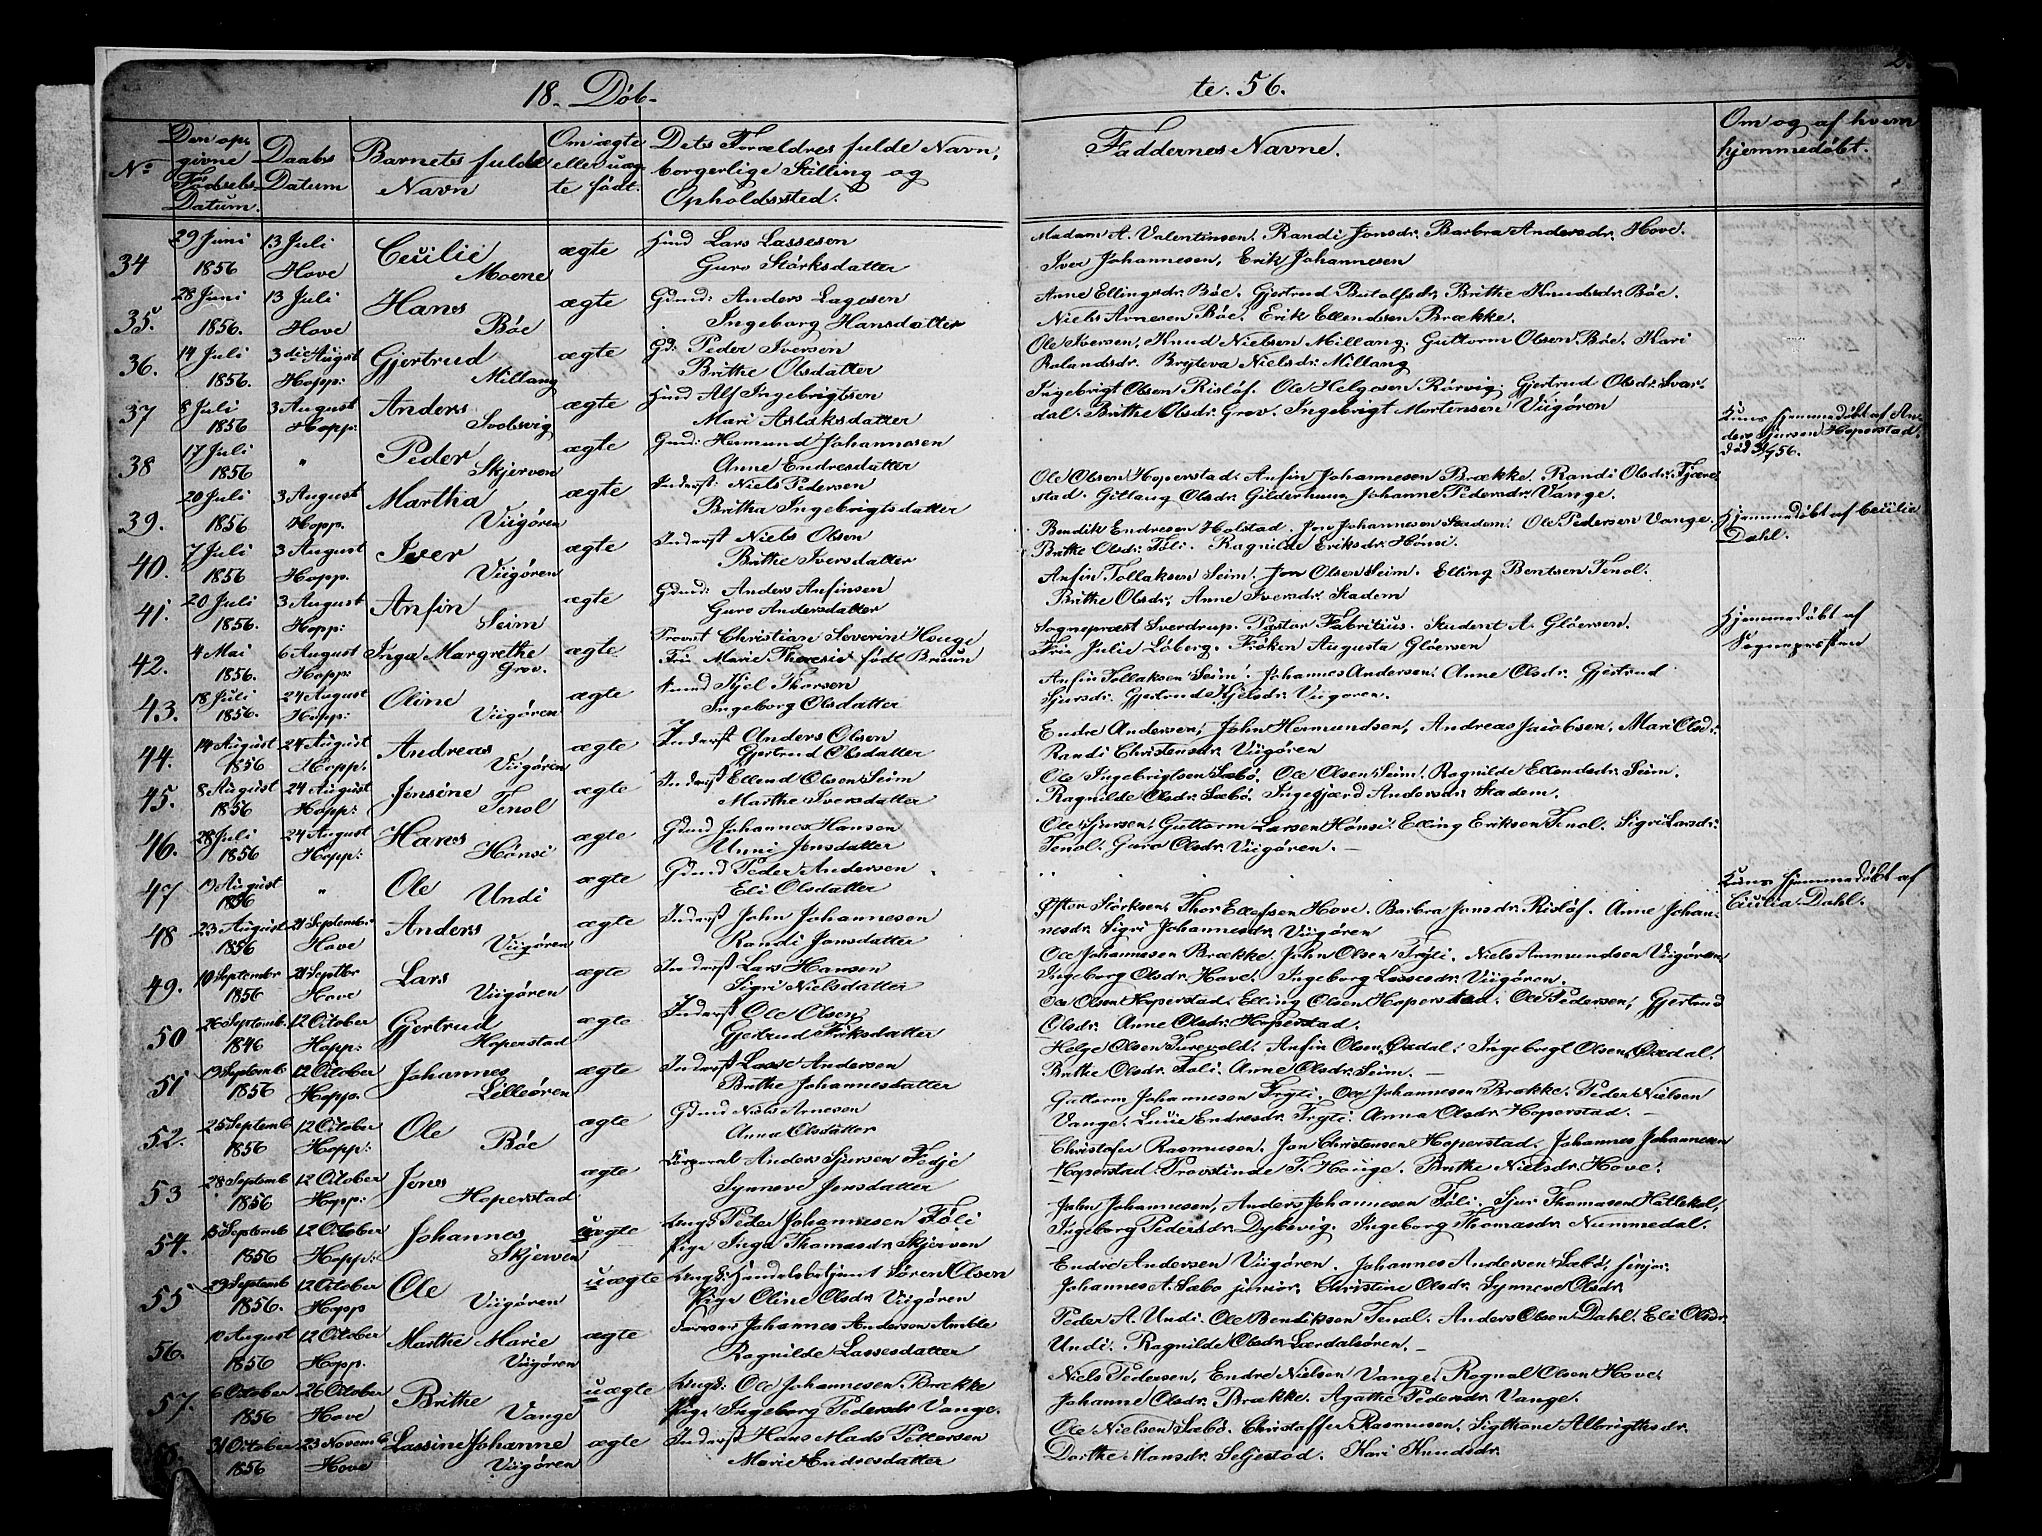 18. Døb-
te. 56.
No
Den op-
givne
Fødsels-
Datum.
Daabs
Datum
Barnets fulde
Navn
Om ægte
eller uæg
te født.
Dets Forældres fulde Navn,
borgerlige Stilling og
Opholdssted.
Faddernes Navne.
Om og af hvem
hjemmedøbt.
34 29 Juni 13 Juli Cecilie ægte Hmd Lars Lassesen Madam A. Valentinsen. Randi Jonsdr. Barbra Andersdr. Hove.
1856 Hove Moene Guro Størksdatter Iver Johannesen, Erik Johannesen
35. 28 Juni 13 Juli Hans ægte Gmd: Anders Lagesen Anne Ellingsdr. Böe. Gjertrud Botolfsdr. Brithe Knudsdr. Böe.
1856. Hove Böe Ingeborg Hansdatter Niels Arnesen Böe. Erik Ellendsen Brække.
36. 14 Juli 3die Augst Gjertrud ægte Gd: Peder Iversen Ole Iversen, Knud Nielsen Millang. Guttorm Olsen Böe. Kari
1856. Hopp: Millang Brithe Olsdatter Rolandsdr. Bryteva Nielsdr. Millang
37 8 Juli 3 August Anders ægte Hmd Alf Ingebrigtsen Ingebrigt Olsen Risløf. Ole Helgesen Rørvig. Gjertrud Olsdr. Svar-
1856 Hopp: Svolsvig Mari Aslaksdatter dal. Brithe Olsdr. Grov. Ingebrigt Mortensen Viigören
38 17 Juli " Peder ægte Gmd: Hermund Johannesen Kuns hjemmedøbt af An-
ders Sjursen Hoperstad.
1856 Skjerven Anne Endresdatter Ole Olsen Hoperstad. Anfin Johannesen Brække. Randi Olsdr. Fjære
39. 20 Juli 3 August Martha ægte Inderst: Niels Pedersen stad. Gillaug Olsdr. Gilderhuus Johanne Pedersdr. Vange.
1856 Hopp. Viigören Britha Ingebrigtsdatter Bendik Endresen Halstad. Jon Johannesen Stadem. Ole Pedersen Vange. Hjemmedøbt af Cecilia
Dahl.
40. 7 Juli 3 August Iver ægte Inderst Niels Olsen Brithe Olsdr. Føli. Ragnilde Eriksdr. Hønsi.
1856 Hopp. Viigören Brithe Iversdatter Anfin Tollaksen Seim. Jon Olsen Seim. Elling Bentsen Tenol.
41. 20 Juli 3 August Anfin ægte Gmd: Anders Anfinsen Brithe Olsdr, Anne Iversdr. Stadem
1856. Hopp: Seim Guro Andersdatter Sogneprest Sverdrup. Pastor Fabritius. Student A. Glöersen. Hjemmedøbt af
42. 4 Mai 6 August Inga Margrethe ægte Provst Christian Severin Houge Frü Julie Løberg. Frøken Augusta Glöersen Sognepresten
1856. Hopp: Grov. Frü Marie Theresie født Bruun Anfin Tollaksen Seim. Johannes Andersen. Anne Olsdr. Gjertrud
43. 18 Juli 24 August Oline ægte Hmd Kjel Thorsen Sjursdr. Gjertrud Kjelsdr. Viigören.
1856. Hopp: Viigören Ingeborg Olsdatter
44. 14 August 24 August Andreas ægte Inderst Anders Olsen Endre Andersen, John Hermundsen, Andreas Jacobsen, Mari Olsdr.
1856. Hopp: Viigören Gjertrud Olsdatter Randi Christensdr. Viigören
45. 8 August 24 August Jensine ægte Inderst Ellend Olsen Seim Ole Ingebrigtsen Sæbö. Ole Olsen Seim. Ragnilde Ellendsdr. Seim.
1856 Hopp: Tenol Marthe Iversdatter Ragnilde Olsdr. Sæbö. Ingegjærd Andersdr. Stadem.
46. 28 Juli 24 August Hans ægte Gmd Johannes Hansen Ole Sjursen, Guttorm Larsen Hønsi. Elling Eriksen Tenol. Sigri Larsdr.
1856 Hopp: Hønsi Unni Jensdatter Tenol. Guro Olsdr. Viigören.
47 19 August " Ole ægte Gmd Peder Andersen Kuns hjemmedøbt af
1856 Undi Eli Olsdatter Cecilia Dahl.
48 23 August 21 September Anders ægte Inderst John Johannesen Østen Størksen, Thor Ellefsen Hove. Barbra Jonsdr. Risløf. Anne Johan-
1856 Hove Viigören Randi Jonsdatter nesdr. Sigri Johannesdr. Viigören
49. 10 Septembr 21 Septbr Lars ægte Inderst Lars Hansen Ole Johannesen Brække. John Olsen Tryti. Niels Ammundsen Viigören
1856 Hove Viigören Sigri Nielsdatter Ingeborg Olsdr. Hove. Ingeborg Lassesdr. Viigören.
50 26 Septemb. 12 October Gjertrud ægte Inderst Ole Olsen Ole Olsen Hoperstad. Elling Olsen Hoperstad. Ole Pedersen, Gjertrud
1846 Hopp: Hoperstad Gjertrud Eriksdatter Olsdr. Anne Olsdr. Hoperstad.
51 19 Septemb 12 October Johannes ægte Inderst Lasse Andersen Helge Olsen Turevold. Anfin Olsen Øxdal. Ingebrigt Olsen Øxdal.
1856 Hopp. Lilleören Brithe Johannesdatter Brithe Olsdr. Føli. Anne Olsdr. Seim.
52. 25 Septemb 12 October Ole ægte Gmd Niels Arnesen Guttorm Johannesen Tryti. Ole Johannesen Brække. Peder Nielsen
1856 Hopp: Böe Anna Olsdatter Vange. Lucie Endresdr. Tryti. Anna Olsdr. Hoperstad.
53 28 Septemb 12 October Jens ægte Korporal Anders Sjursen Fedje Christofer Rasmusen. Jon Christensen Hoperstad. Johannes Johannesen
1856 Hopp: Hoperstad Synneve Jensdatter Hoperstad. Provstinde T. Houge. Brithe Nielsdr. Hove.
54. 15 Septemb 12 October Johannes uægte Ungk: Peder Johannesen Föli John Johannesen, Anders Johannesen Føli. Sjur Thomasen Hatlekol,
1856 Hopp: Skjerven Pige Inga Thomasdr. Skjerven Ingeborg Pedersdr. Dyksvig. Ingeborg Thomasdr. Nummedal.
55 29 Septemb 12 October Ole uægte Ungk: Handelsbetjent Sören Olsen Endre Andersen Viigören. Johannes Andersen Sæbö, sinjor.
1856. Hopp Viigören Pige Oline Olsdr. Viigören Johannes A. Sæbo junior. Christine Olsdr. Synneve Olsdr.
56. 10 August 12 October Marthe Marie ægte Farver Johannes Andersen Amble Peder A. Undi. Ole Bendiksen Tenol. Anders Olsen Dahl. Eli Olsdr.
1856 Hopp. Viigören Ragnilde Lassesdatter Undi. Ragnilde Olsdr. Lærdalsören.
57. 6 October 26 October Brithe uægte Ungk: Ole Johannesen Brække Niels Pedersen, Endre Nielsen Vange, Rognal Olsen Hove,
1856 Hove Vange Pige Ingeborg Pedersdr Vange. Johanne Olsdr. Brække. Agathe Pedersdr. Vange.
58. 31 October 23 Novemb Lassine Johanne ægte Inderst Hans Mads Pettersen Ole Nielsen Sæbö. Christoffer Rasmusen. Sigthone Albrigthsdr.
1856 Hove Viigören Marie Endresdatter Dorthe Monsdr. Seljestöd. Kari Knudsdr.